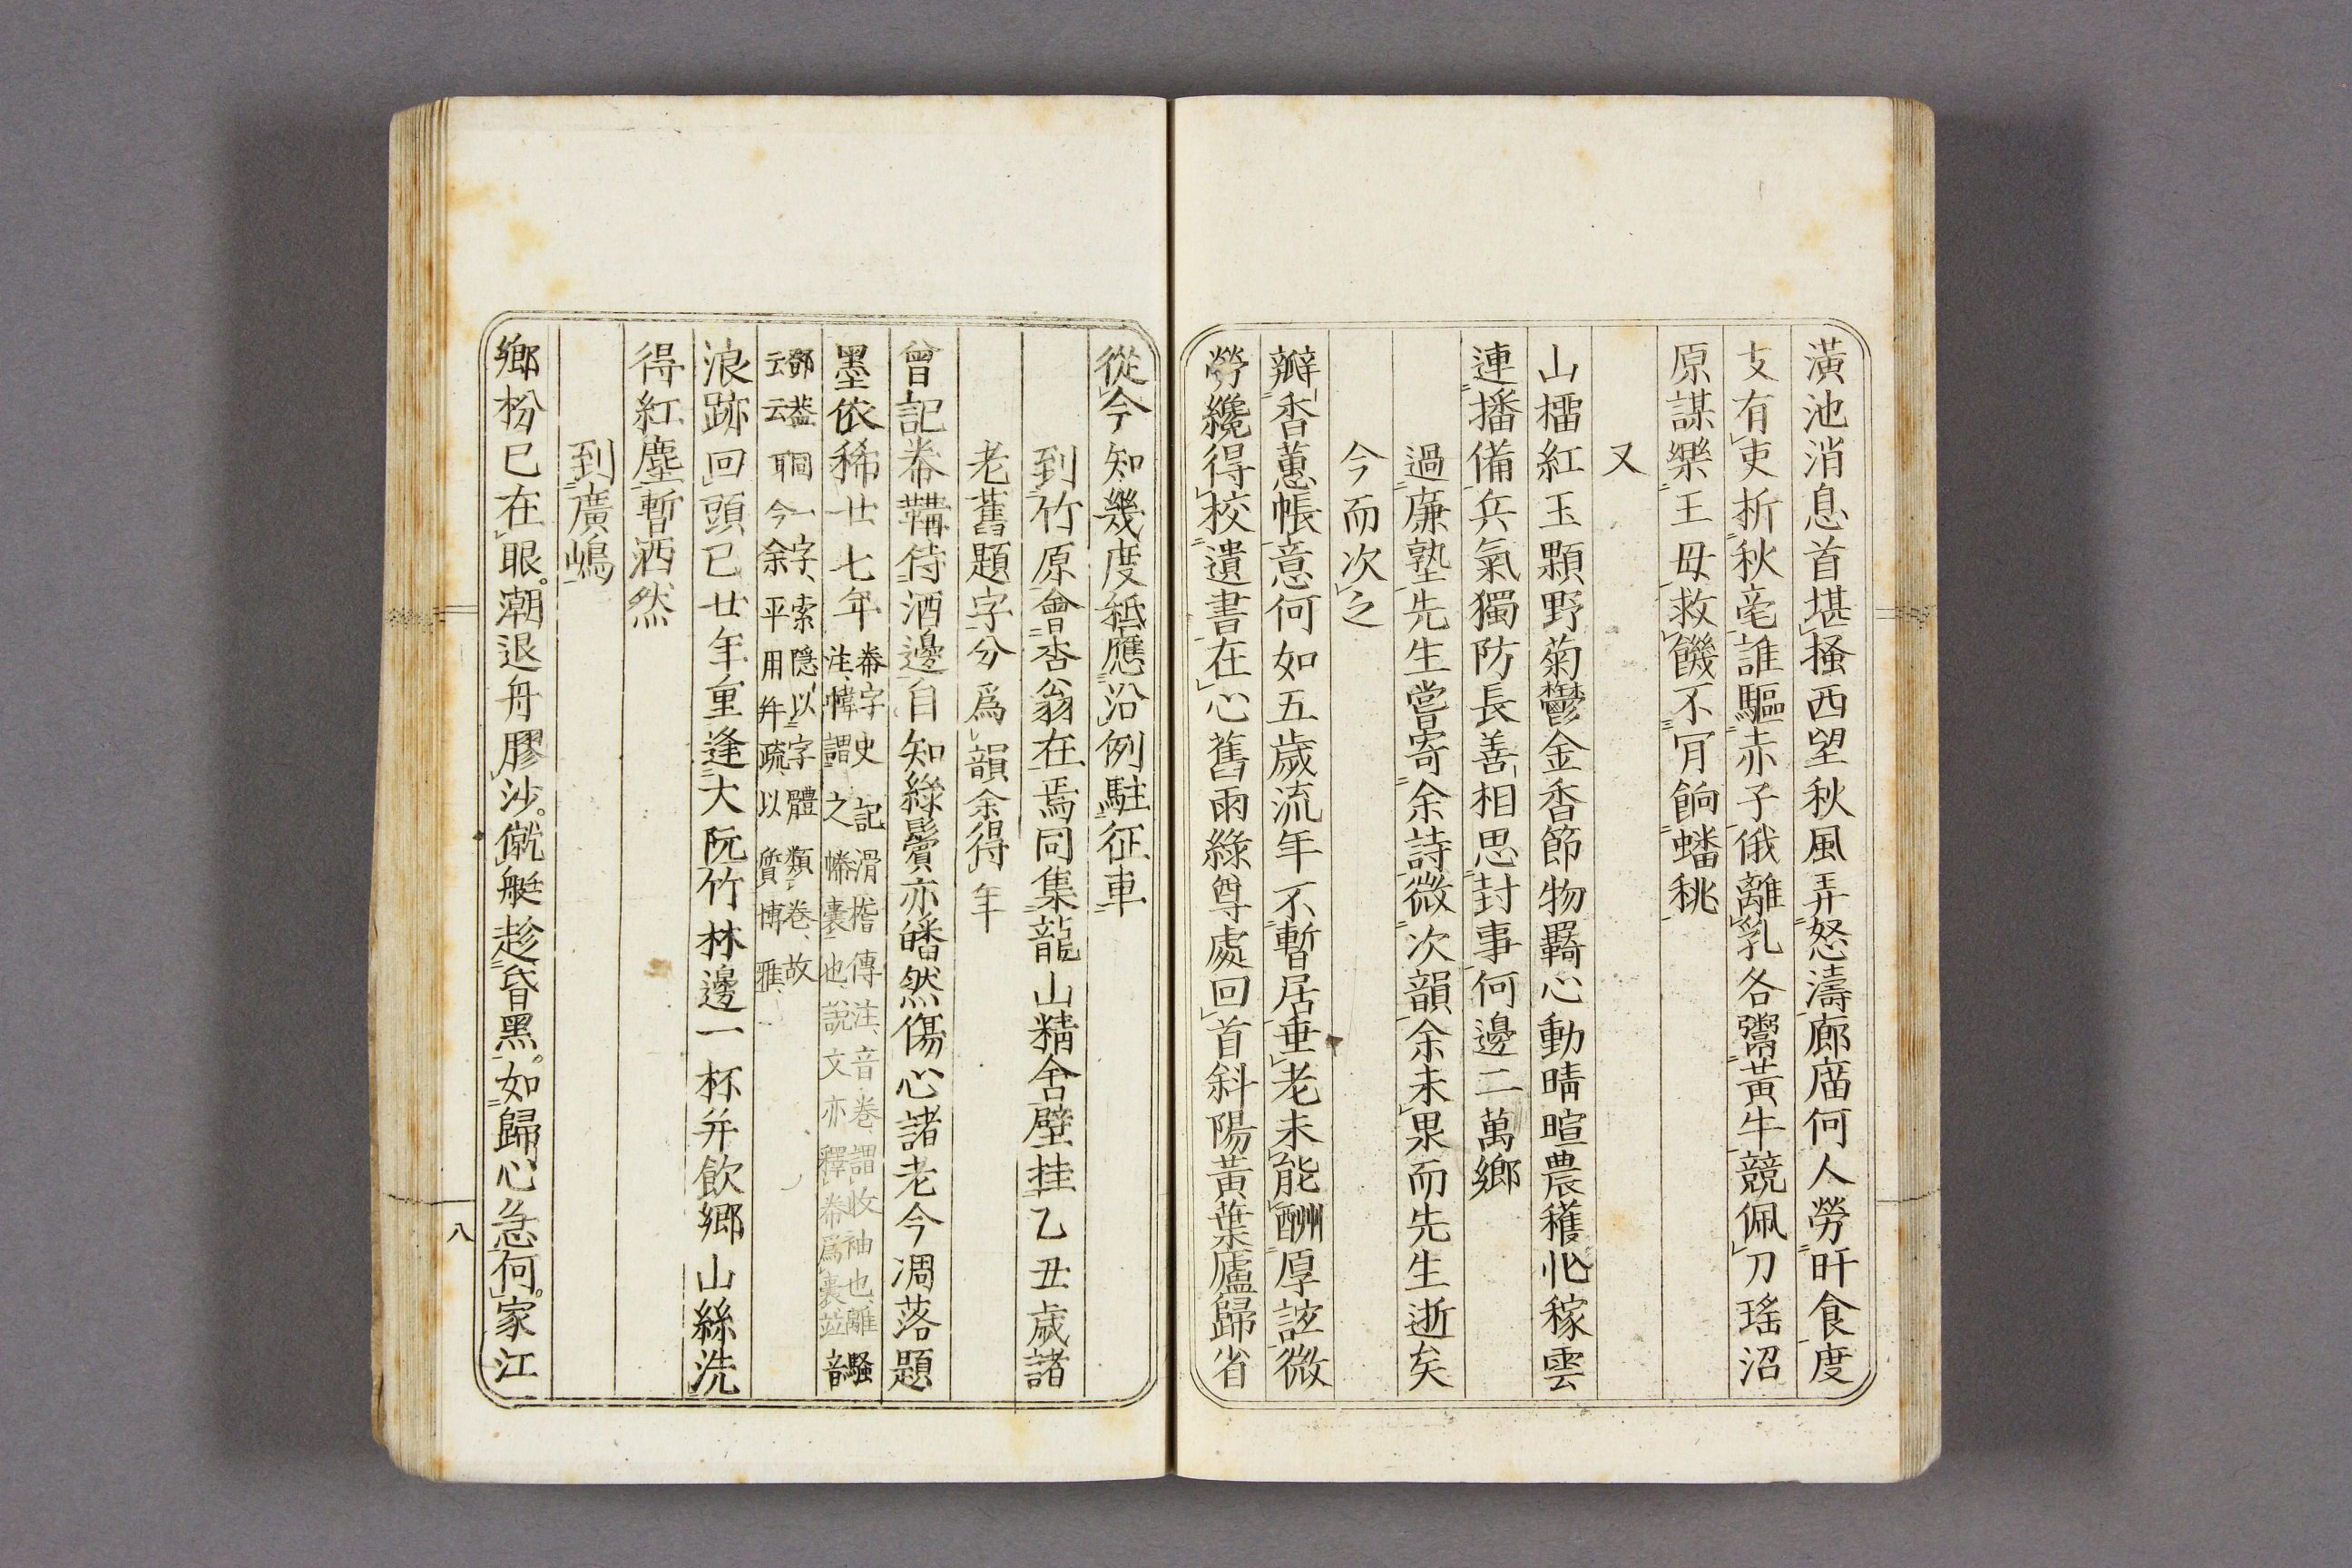 潢池消息首堪搔西望秋風弄怒濤廊庿何人勞旰食度
支有吏折秋毫誰驅赤子俄離乳各鬻黃牛競佩刀瑤沼
原謀樂王母救饑不肎餉蟠桃
又
山櫑紅玉顆野菊鬱金香節物羈心動晴暄農穫忙稼雲
連播備兵氣獨防長善相思封事何邊二萬鄉
過廉塾先生嘗寄余詩微次韻余未果而先生逝矣
今而次之
瓣香蕙帳意何如五歲流年不暫居垂老未能酬厚誼微
勞纔得校遺書在心舊雨綠尊處回首斜陽黃葉廬歸省
從今知幾度秪應沿例駐征車
到竹原會杏翁在焉同集龍山精舍壁挂乙丑歲諸
老舊題字分爲韻余得年
曾記帣鞲侍酒邊自知綠鬢亦皤然傷心諸老今凋落題
墨依稀廿七年
帣字史記滑稽傳注音卷謂收袖也離騷
注幃謂之幐囊也說文亦釋帣爲囊並音
鄧葢同一字索隠以字體類卷故
云云耶今余平用并疏以質博雅
浪跡回頭已廿年重逢大阮竹林邊一杯并飲鄉山綠洗
得紅塵暫洒然
到廣嶋
鄉枌已在眼潮退舟膠沙僦艇趁昏黑如歸心急何家江
八